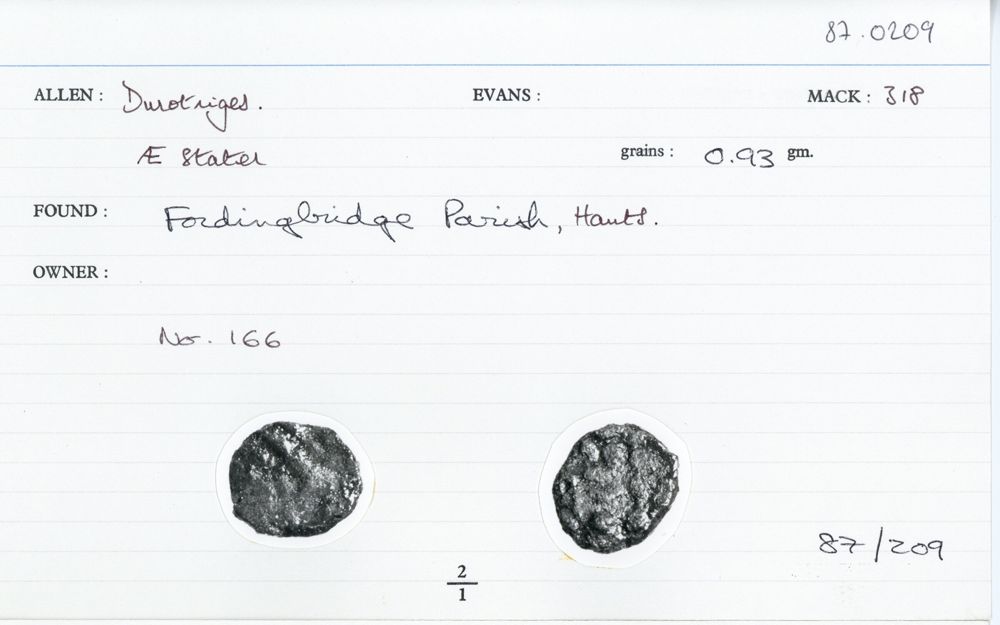 87.0209
ALLEN : Durotriges. EVANS : MACK : 318
Æ Stater grains : 0.93 gm.
FOUND : Fordingbridge Parish, Hants.
OWNER :
No. 166
87/209
2
1